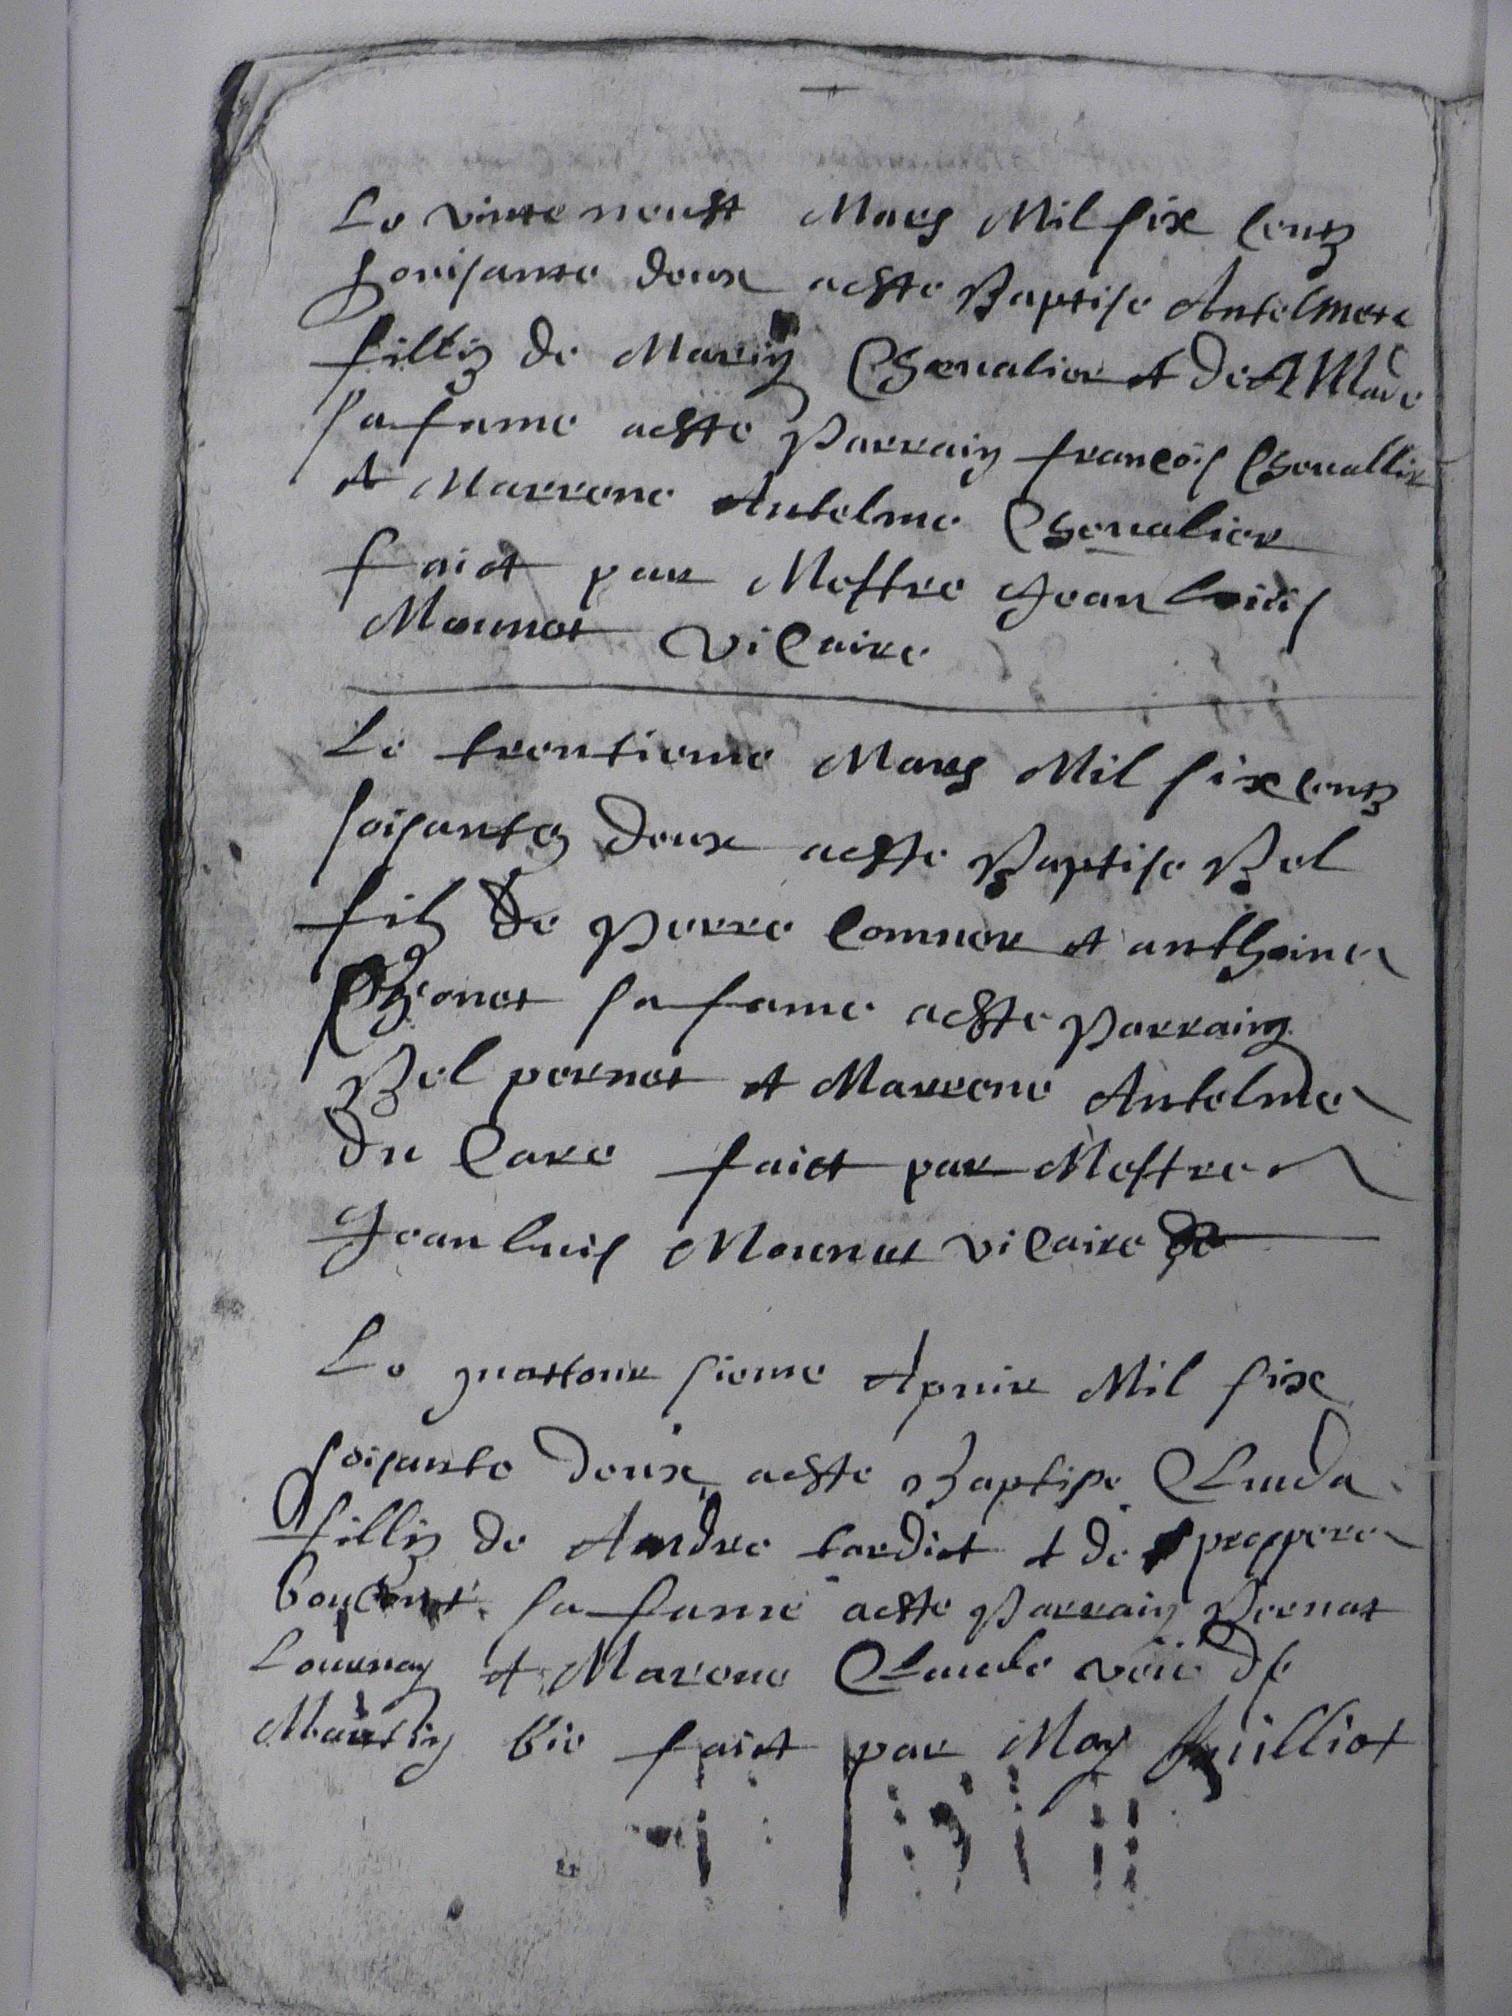 Le vinte neuft Mars Mil six Centz
soisante deux aeste Baptise Antelmete
fillie de Marin Chevalier et de
sa fame aeste Parrain françois Chevallier
et Marrene Antelme Chevalier
faict par Mestre Jean louis
Mounot vicaire
Le trentieme Mars Mil six centz
soisante deux aeste Baptise Bel
filz de Pierre et anthoine
sa fame aeste Parrain
Bel pernet et Marrene Antelme
du Care faict par Mestre
Jean luis Mounot vicaire
Le quattour sieme Apvir Mil six
soisante deux aeste Baptise Clauda
fillie de Andre tardiet et de prospere
sa fame aeste Parrain
et Marene Claude de
faict par Moy